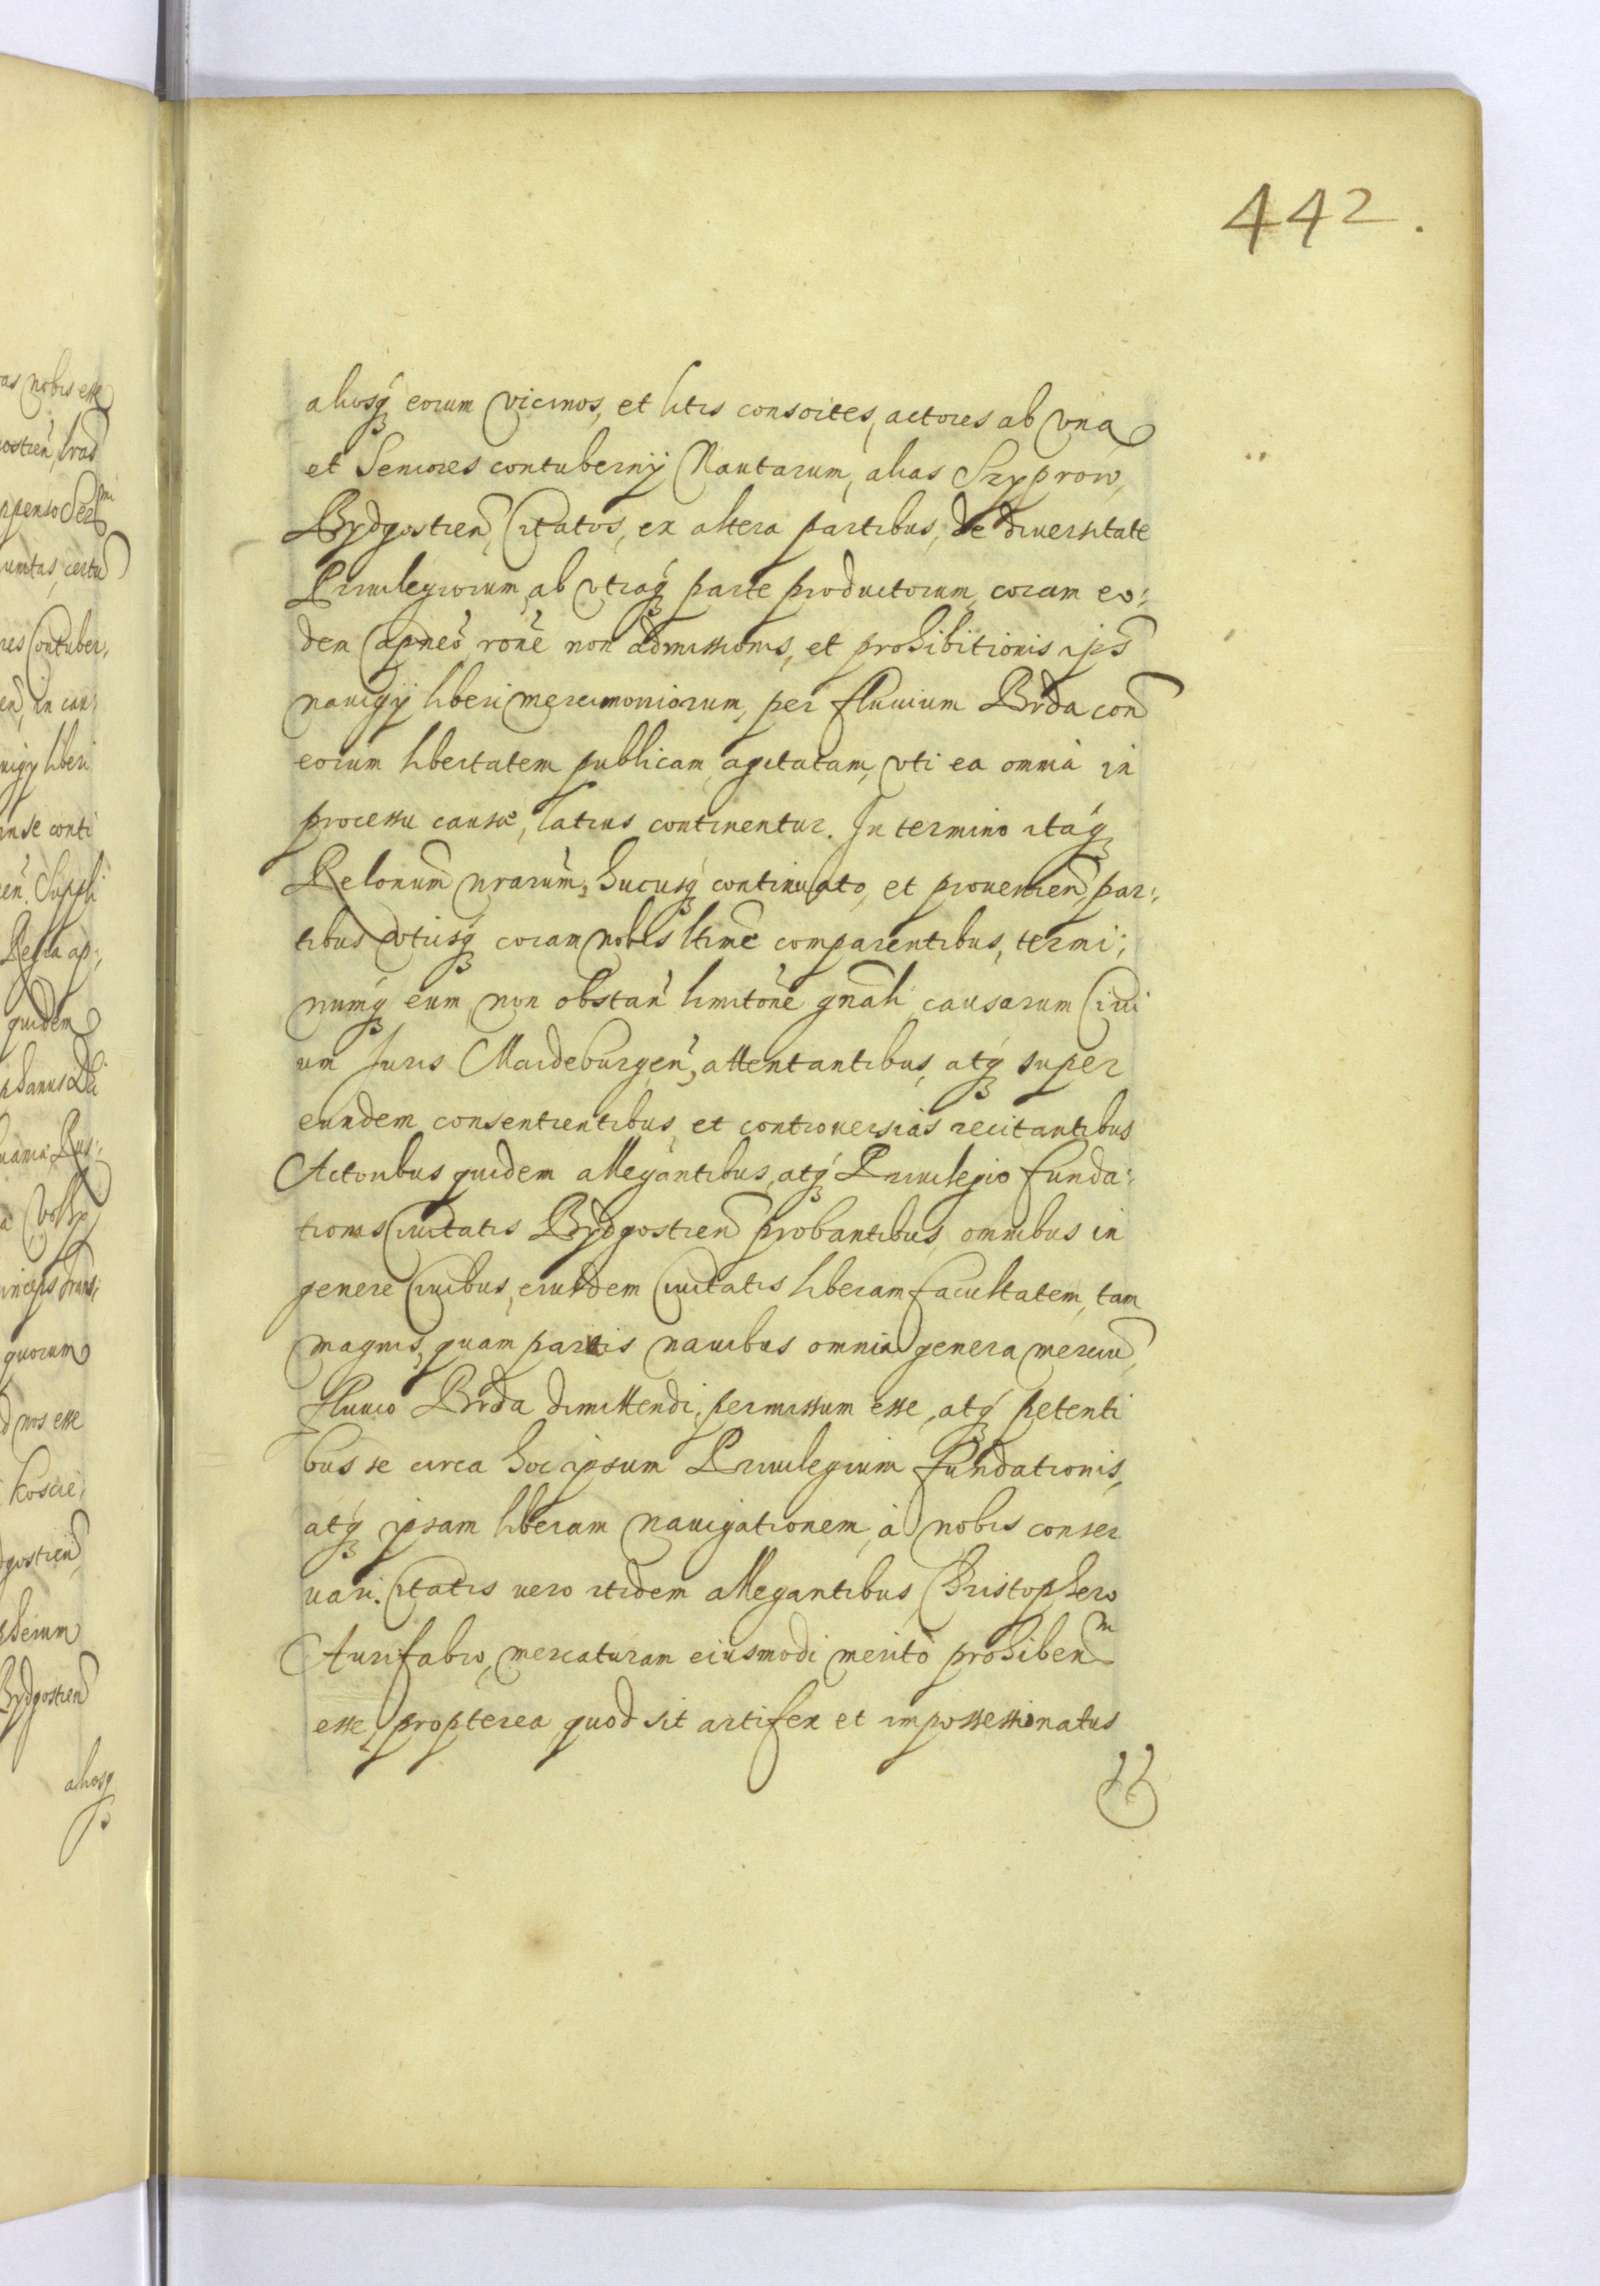 442.
aliosq eorum vicinos, et litis consortes, actores ab vna
et Seniores contubernij Nautarum, alias Szyprow,
Bydgostien, Citatos, ex altera partibus, de diuersitate
Priuilegiorum, ab vtraq parte productorum, coram eo:
dem Capneo rone non admissionis, et prohibitionis ips
nauigij liberi mercimoniorum, per fluuium Brda con
eorum libertatem publicam, agitatam, vti ea omnia in
processu causæ, latius continentur. In termino itaq
Relonum nrarum, hucusq continuato, et prouenien, par:
tibus vtrisq coram nobis ltime comparentibus, termi:
numq eum, non obstan limitone gnali causarum Ciui
um Juris Maideburgen, attentantibus, atq super
eundem consentientibus, et controuersias recitantibus
Actoribus quidem allegantibus, atq Priuilegio funda:
tionis Ciuitatis Bydgostien probantibus, omnibus in
genere Ciuibus, eiusdem Ciuitatis liberam facultatem, tam
magnis, quam paruis nauibus omnia genera merciu,
fluuio Brda dimittendi, permissum esse, atq petenti
bus se circa hoc ipsum Priuilegium fundationis,
atq ipsam liberam nauigationem, à nobis conser
uari. Citatis vero itidem allegantibus, Christophero
Aurifabro, mercaturam eiusmodi merito prohiben m
esse, propterea quod sit artifex et impossessionatus
as nobis esse
ostien, lras
umtas, certu
res Contuber,
en, in cau:
uigij liberi
in se conti
en. Suppli
Regia ap:,
quidem
phanus Dei
uania, Rus:,
quorum
d nos esse
Koscie,
gostien,
pherum
Bydgostien
aliosq